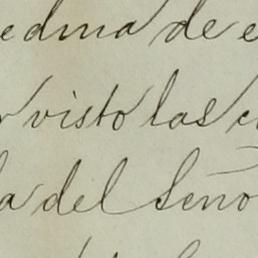 edma de e
visto las c
la del Seño